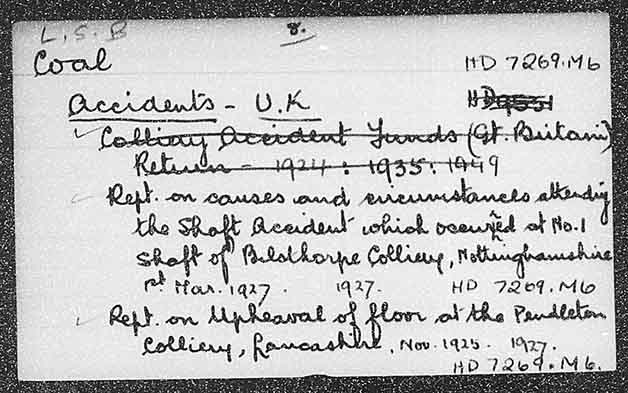 L.S.B 8.
Coal HD 7269.M6
Accidents - U.K
Colliery Accident Funds (Gt. Britain)
Return - 1924 : 1935 : 1949
Rept. on causes and circumstances attending
the Shaft Accident which occurred at No.1
Shaft of Bilsthorpe Colliery, Nottinghamshire
1st Mar. 1927. 1927. HD 7269.M6
Rept. on Upheaval of floor at the Pendleton
Colliery, Lancashire, Nov. 1925. 1927.
HD 7269.M6.